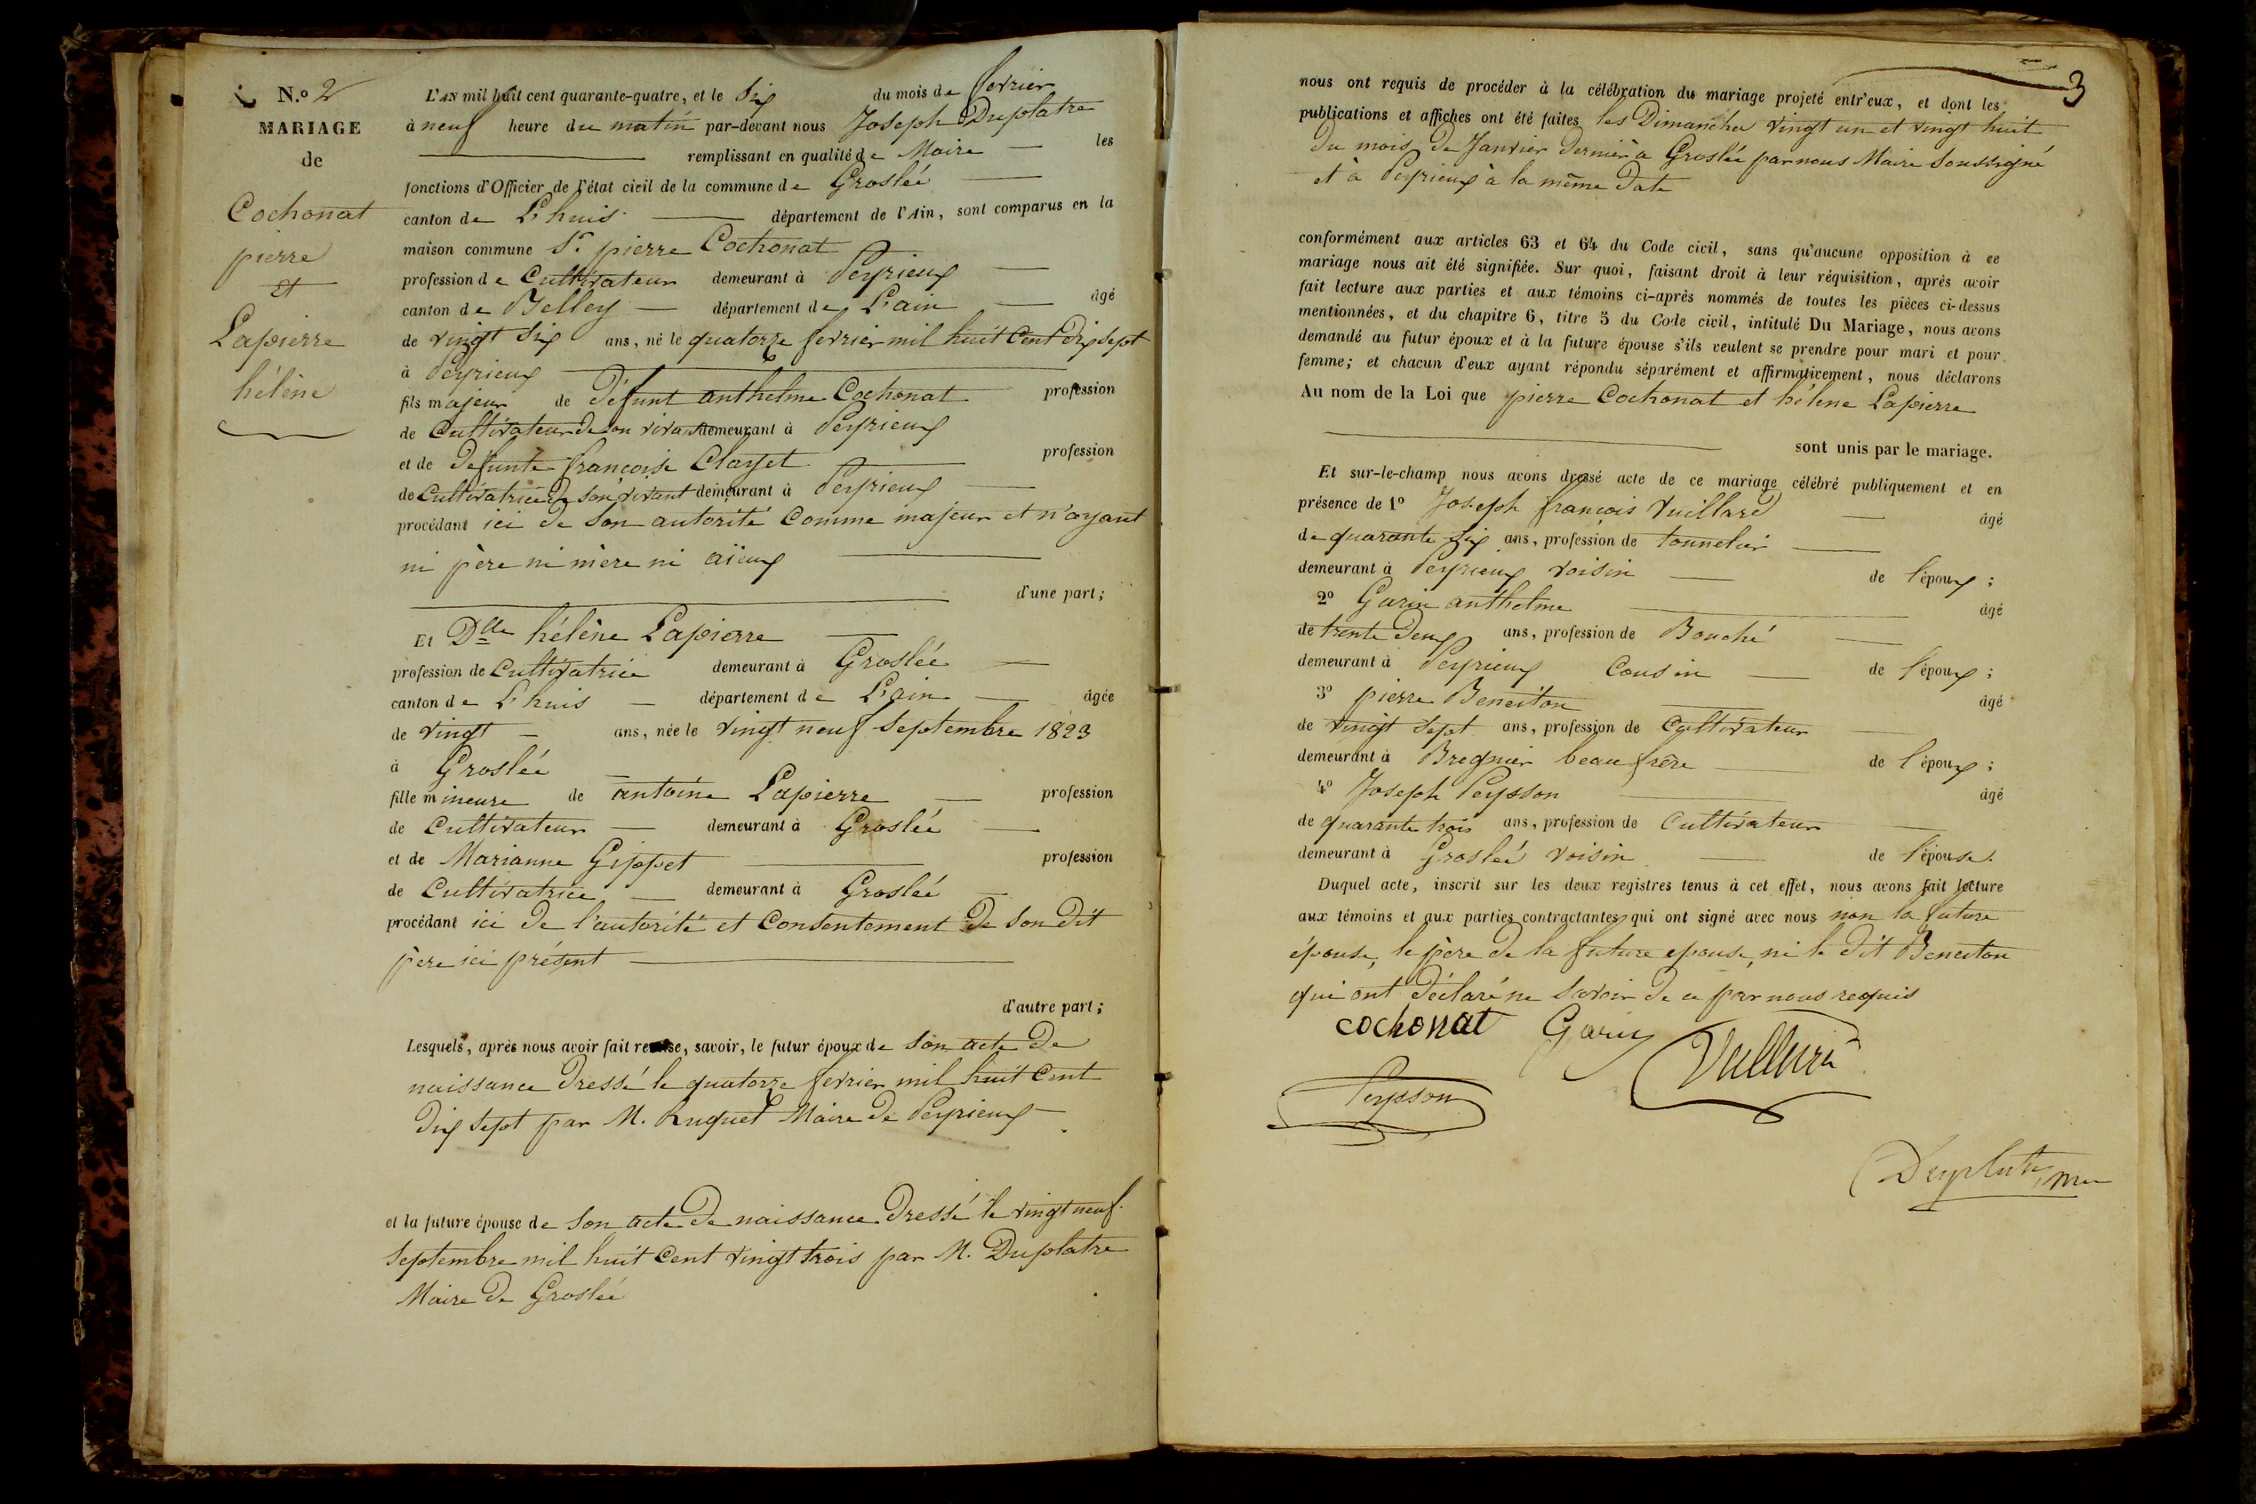 N.º 2
MARIAGE
de
Cochonat
pierre
et
Lapierre
hélène
L'AN mil huit cent quarante-quatre, et le Six du mois de fevrier
à neuf heure du matin par-devant nous Joseph Duplatre
remplissant en qualité de Maire les
fonctions d'Officier de l'état civil de la commune de Groslée
canton de L'huis département de l'Ain, sont comparus en la
maison commune Sr pierre Cochonat
profession de Cultivateur demeurant à Peyrieux
canton de Belley département de L'ain âgé
de vingt Six ans, né le quatorze fevrier mil huit Cent dix sept
à Peyrieux
fils majeur de défunt anthelme Cochonat profession
de Cultivateur de son vivant demeurant à Peyrieux
et de defunte françoise Clayet profession
de Cultivatrice de son vivant demeurant à Peyrieux
procédant ici de son autorité Comme majeur et n'ayant
ni père ni mère ni aïeux
d'une part;
Et Dlle hélène Lapierre
profession de Cultivatrice demeurant à Groslée
canton de L'huis département de L'ain âgée
de vingt ans, née le vingt neuf Septembre 1823
à Groslée
fille mineure de antoine Lapierre profession
de Cultivateur demeurant à Groslée
et de Marianne Gippet profession
de Cultivatrice demeurant à Groslée
procédant ici de l'autorité et Consentement de Son dit
père ici présent
d'autre part;
Lesquels, après nous avoir fait remise, savoir, le futur époux de Son acte de
naissance dressé le quatorze fevrier mil huit Cent
dix Sept par M. Ruquet Maire de Peyrieux
et la future épouse de Son acte de naissance dressé le vingt neuf
Septembre mil huit Cent vingt trois par M. Duplatre
Maire de Groslée
3
nous ont requis de procéder à la célébration du mariage projeté entr'eux, et dont les
publications et affiches ont été faites les Dimanches vingt un et vingt huit
du mois de Janvier dernier à Groslée par nous Maire Soussigné
et à Peyrieux à la même date
conformément aux articles 63 et 64 du Code civil, sans qu'aucune opposition à ce
mariage nous ait été signifiée. Sur quoi, faisant droit à leur réquisition, après avoir
fait lecture aux parties et aux témoins ci-après nommés de toutes les pièces ci-dessus
mentionnées, et du chapitre 6, titre 5 du Code civil, intitulé Du Mariage, nous avons
demandé au futur époux et à la future épouse s'ils veulent se prendre pour mari et pour
femme; et chacun d'eux ayant répondu séparément et affirmativement, nous déclarons
Au nom de la Loi que pierre Cochonat et hélène Lapierre
sont unis par le mariage.
Et sur-le-champ nous avons dressé acte de ce mariage célébré publiquement et en
présence de 1º Joseph françois Vuillard âgé
de quarante six ans, profession de tonnelier
demeurant à Peyrieux voisin de l'époux;
2º Garin anthelme âgé
de trente deux ans, profession de Bouché
demeurant à Peyrieux Cousin de l'époux;
3º pierre Beneiton âgé
de vingt Sept ans, profession de Cultivateur
demeurant à Bregnier beau frère de l'époux;
4º Joseph Peysson âgé
de quarante trois ans, profession de Cultivateur
demeurant à Groslée voisin de l'épouse.
Duquel acte, inscrit sur les deux registres tenus à cet effet, nous avons fait lecture
aux témoins et aux parties contractantes qui ont signé avec nous non la future
épouse, le père de la future epouse, ni le dit Beneiton
qui ont déclaré ne Savoir de ce par nous requis
cochonat Garin Vuillard
Peysson
Duplatre